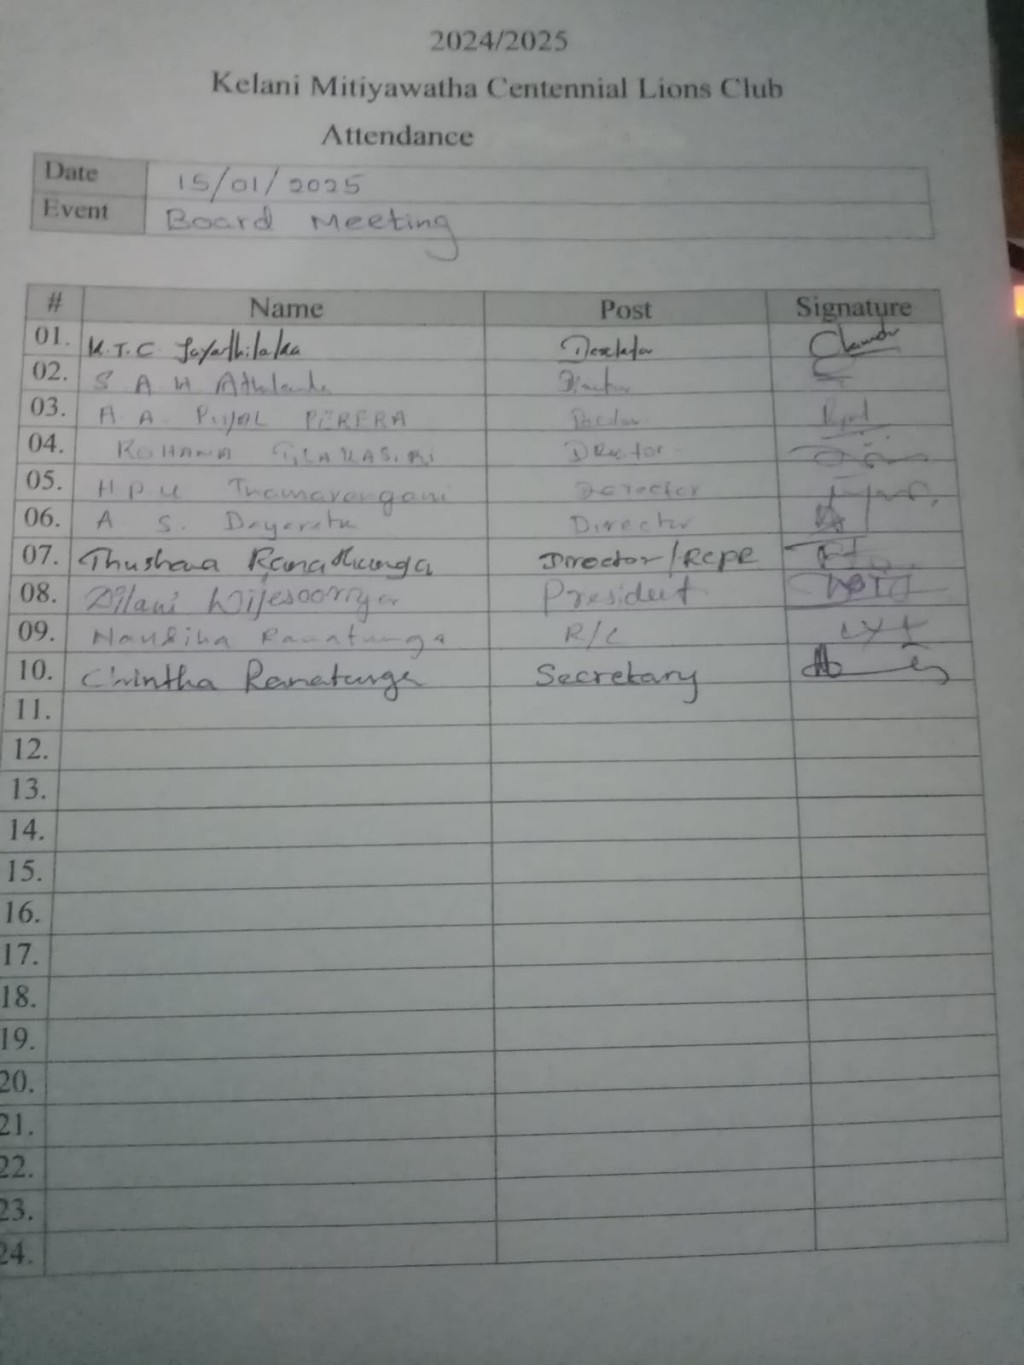 2024/2025
Kelani Mitiyawatha Centennial Lions Club
Attendance
Date 15/01/2025
Event Board Meeting
# Name Post Signature
01. K.T.C. Jayathilaka
02. S A H
03. A. A. PIYAL PERERA
04. ROHANA TILAKASIRI Director
05. H P U Thamarangani Director
06. A S. Dayaratu Director
07. Thushara Ranathunga Director/RCPR
08. Dilani Wijesooriya President
09. Nausika Ranatunga R/C
10. Chrintha Ranatunge Secretary
11.
12.
13.
14.
15.
16.
17.
18.
19.
20.
21.
22.
23.
24.